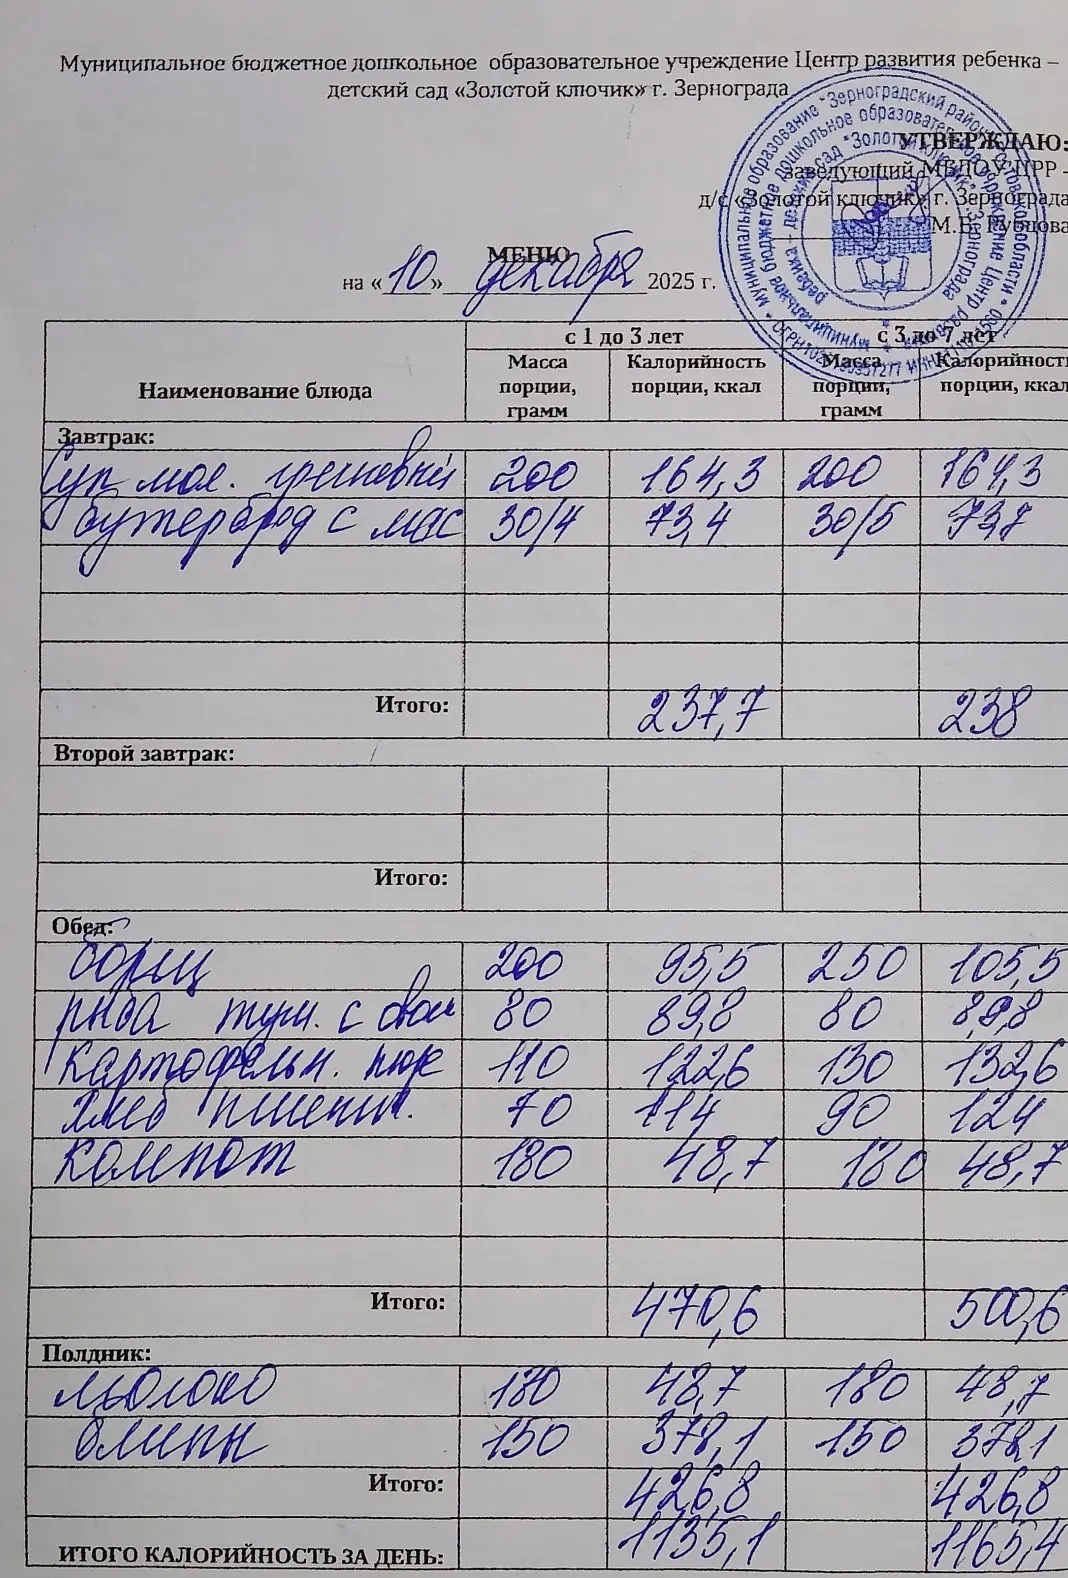 Муниципальное бюджетное дошкольное образовательное учреждение Центр развития ребенка –
детский сад «Золотой ключик» г. Зернограда
УТВЕРЖДАЮ:
заведующий МБДОУ ЦРР -
д/с «Золотой ключик» г. Зернограда
М.В. Рубцова
МЕНЮ
на «10» декабря 2025 г.
Наименование блюда с 1 до 3 лет с 3 до 7 лет
Масса порции, грамм Калорийность порции, ккал Масса порции, грамм Калорийность порции, ккал
Завтрак:
Суп мол. гречневый 200 164,3 200 164,3
бутерброд с мас 30/4 73,4 30/5 73,7
Итого: 237,7 238
Второй завтрак:
Итого:
Обед:
борщ 200 95,5 250 105,5
рыба туш. с овом 80 89,8 80 89,8
картофельн. пюре 110 122,6 130 132,6
хлеб пшенич. 70 114 90 124
компот 180 48,7 180 48,7
Итого: 470,6 500,6
Полдник:
молоко 180 48,7 180 48,7
блины 150 378,1 150 378,1
Итого: 426,8 426,8
ИТОГО КАЛОРИЙНОСТЬ ЗА ДЕНЬ: 1135,1 1165,4